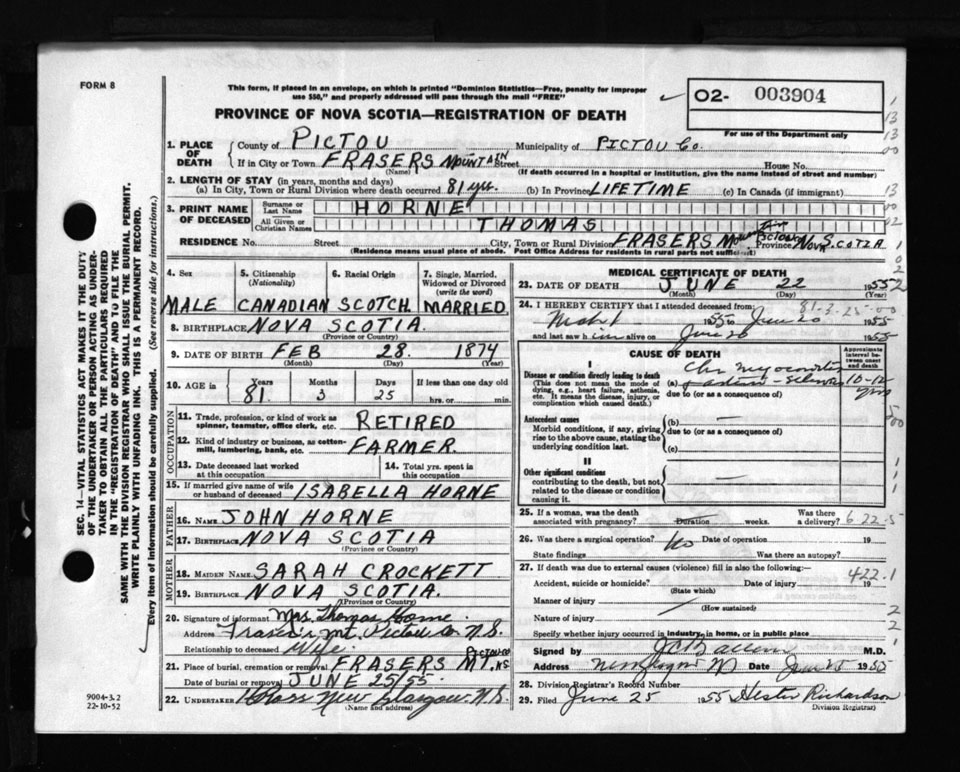 FORM 8
This form, if placed in an envelope, on which is printed "Dominion Statistics—Free, penalty for improper
use $50," and properly addressed will pass through the mail "FREE"
02- 003904
For use of the Department only
PROVINCE OF NOVA SCOTIA—REGISTRATION OF DEATH
1. PLACE OF DEATH County of PICTOU Municipality of PICTOU Co.
If in City or Town FRASERS MOUNTAIN Street House No.
(Name) (If death occurred in a hospital or institution, give the name instead of street and number)
2. LENGTH OF STAY (in years, months and days)
(a) In City, Town or Rural Division where death occurred 81 yrs. (b) In Province LIFETIME (c) In Canada (if immigrant)
3. PRINT NAME OF DECEASED Surname or Last Name HORNE
All Given or Christian Names THOMAS
RESIDENCE No. Street City, Town or Rural Division FRASERS Province NOVA SCOTIA
(Residence means usual place of abode. Post Office Address for residents in rural parts not sufficient)
4. Sex MALE
5. Citizenship (Nationality) CANADIAN
6. Racial Origin SCOTCH
7. Single, Married, Widowed or Divorced (write the word) MARRIED
8. BIRTHPLACE NOVA SCOTIA.
(Province or Country)
9. DATE OF BIRTH FEB 28. 1874
(Month) (Day) (Year)
10. AGE in Years 81. Months 3 Days 25 If less than one day old hrs. or min.
OCCUPATION
11. Trade, profession, or kind of work as spinner, teamster, office clerk, etc. RETIRED
12. Kind of industry or business, as cotton-mill, lumbering, bank, etc. FARMER.
13. Date deceased last worked at this occupation
14. Total yrs. spent in this occupation
15. If married give name of wife or husband of deceased ISABELLA HORNE
FATHER
16. NAME JOHN HORNE
17. BIRTHPLACE NOVA SCOTIA
(Province or Country)
MOTHER
18. MAIDEN NAME SARAH CROCKETT
19. BIRTHPLACE NOVA SCOTIA.
(Province or Country)
20. Signature of informant Mrs. Thomas Horne
Address Frasers Mt. Pictou Co N.S.
Relationship to deceased Wife.
21. Place of burial, cremation or removal FRASERS MT. PICTOU CO NS
Date of burial or removal JUNE 25/55.
22. UNDERTAKER New Glasgow N.S.
(Name and address)
MEDICAL CERTIFICATE OF DEATH
23. DATE OF DEATH JUNE 22 1955
(Month) (Day) (Year)
24. I HEREBY CERTIFY that I attended deceased from:
1955 to June 20 1955
and last saw him alive on June 20 1955
CAUSE OF DEATH
Approximate interval between onset and death
I
Disease or condition directly leading to death
(This does not mean the mode of dying, e.g., heart failure, asthenia, etc. It means the disease, injury, or complication which caused death.)
(a) Chr myocarditis 10-12 yrs
due to (or as a consequence of)
Antecedent causes
Morbid conditions, if any, giving rise to the above cause, stating the underlying condition last.
(b)
due to (or as a consequence of)
(c)
II
Other significant conditions
contributing to the death, but not related to the disease or condition causing it.
25. If a woman, was the death associated with pregnancy? Duration weeks. Was there a delivery?
26. Was there a surgical operation? No Date of operation 19
State findings Was there an autopsy?
27. If death was due to external causes (violence) fill in also the following:
422.1
Accident, suicide or homicide? Date of injury 19
(State which)
Manner of injury
(How sustained)
Nature of injury
Specify whether injury occurred in industry, in home, or in public place
Signed by M.D.
Address New Glasgow Date 1955
28. Division Registrar's Record Number
29. Filed June 25 1955 Hester Richardson
Division Registrar
SEC. 14—VITAL STATISTICS ACT MAKES IT THE DUTY
OF THE UNDERTAKER OR PERSON ACTING AS UNDER-
TAKER TO OBTAIN ALL THE PARTICULARS REQUIRED
IN THE "REGISTRATION OF DEATH" AND TO FILE THE
SAME WITH THE DIVISION REGISTRAR WHO SHALL ISSUE THE BURIAL PERMIT.
WRITE PLAINLY WITH UNFADING INK. THIS IS A PERMANENT RECORD.
Every item of information should be carefully supplied. (See reverse side for instructions.)
9004-3.2
22-10-52